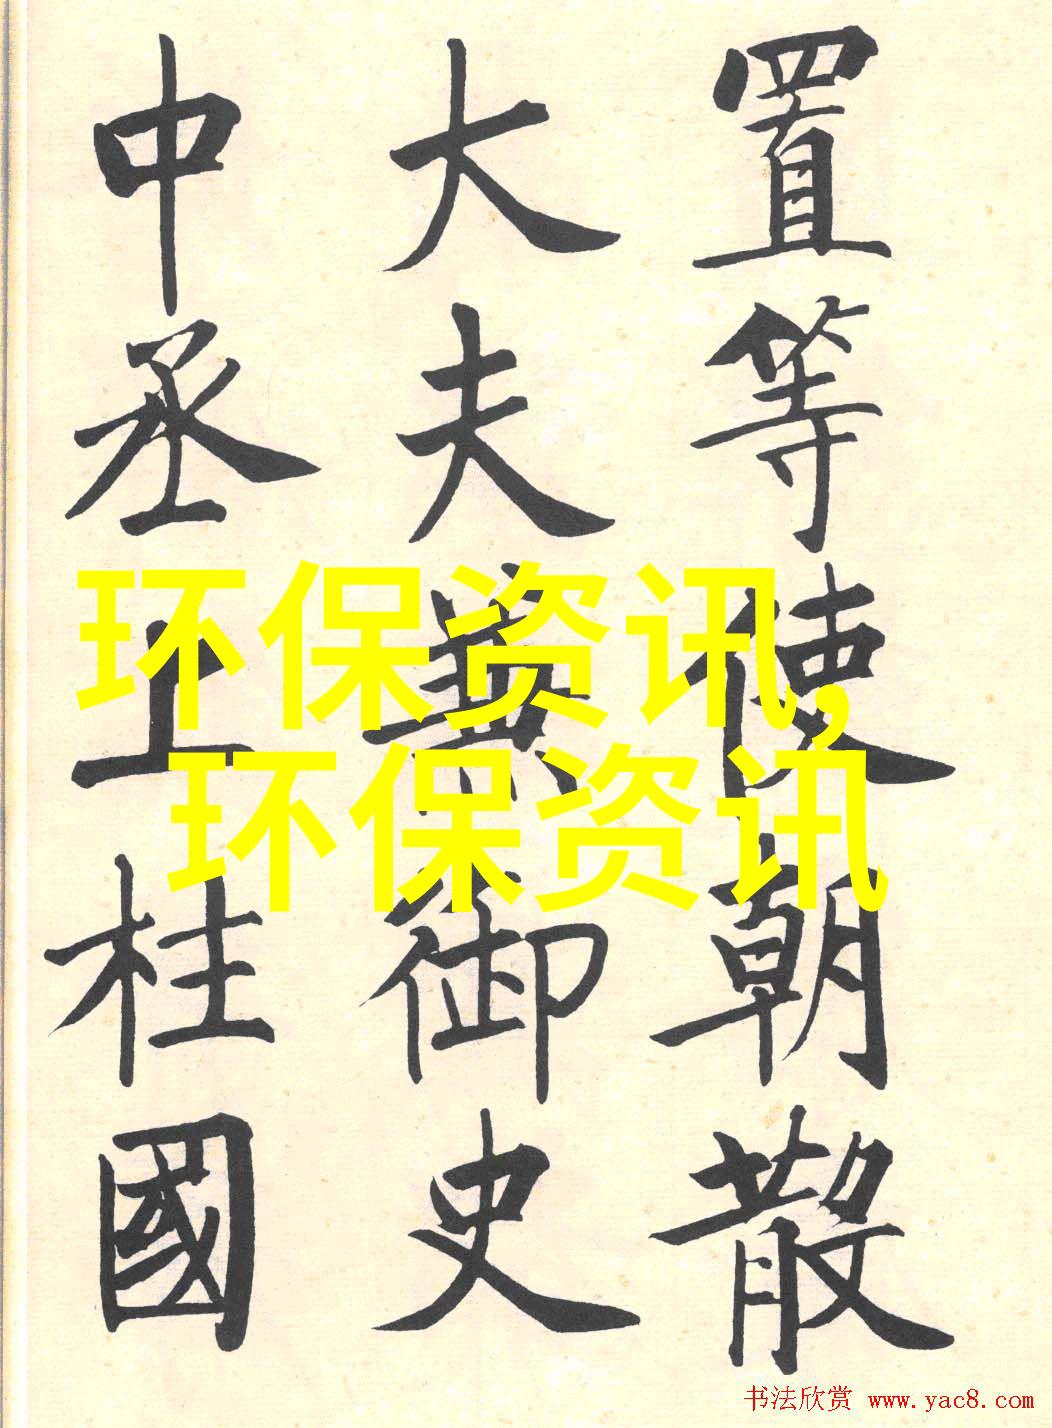 置等使朝散
大夫兼御史
中丞上柱國
环保资讯,
环保资讯
书法欣赏 www.yac8.com